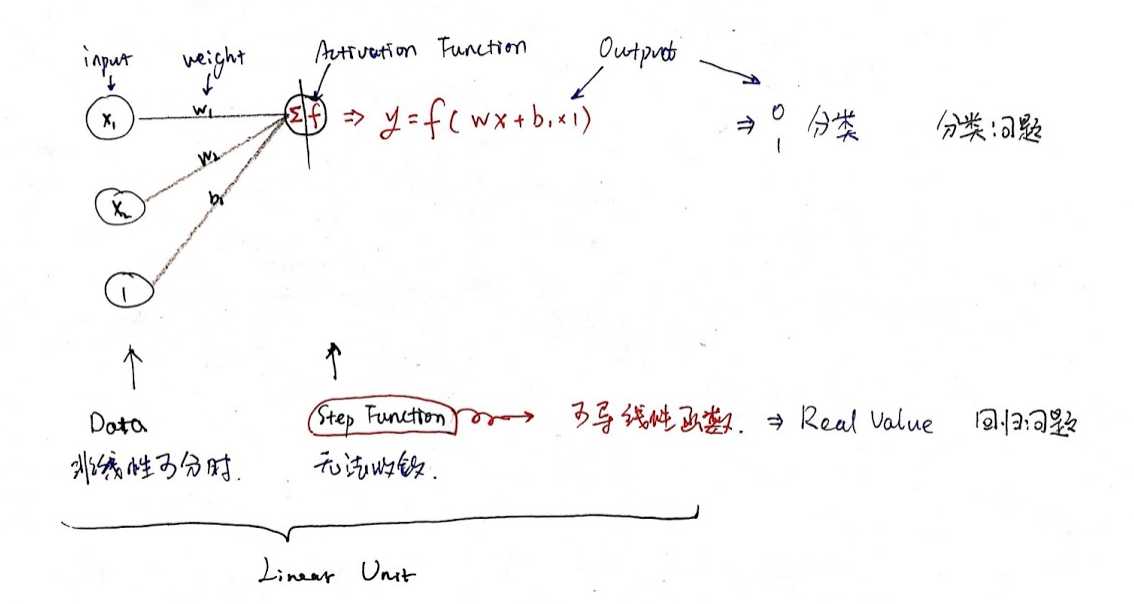 input weight Activation Function Output
x₁ w₁ Σ f ⇒ y = f( wx + b₁×1) ⇒ 0 分类 分类问题
1
w₂
x₂ b₁
1
Data Step Function 可导线性函数. ⇒ Real Value 回归问题
非线性可分时. 无法收敛.
Linear Unit